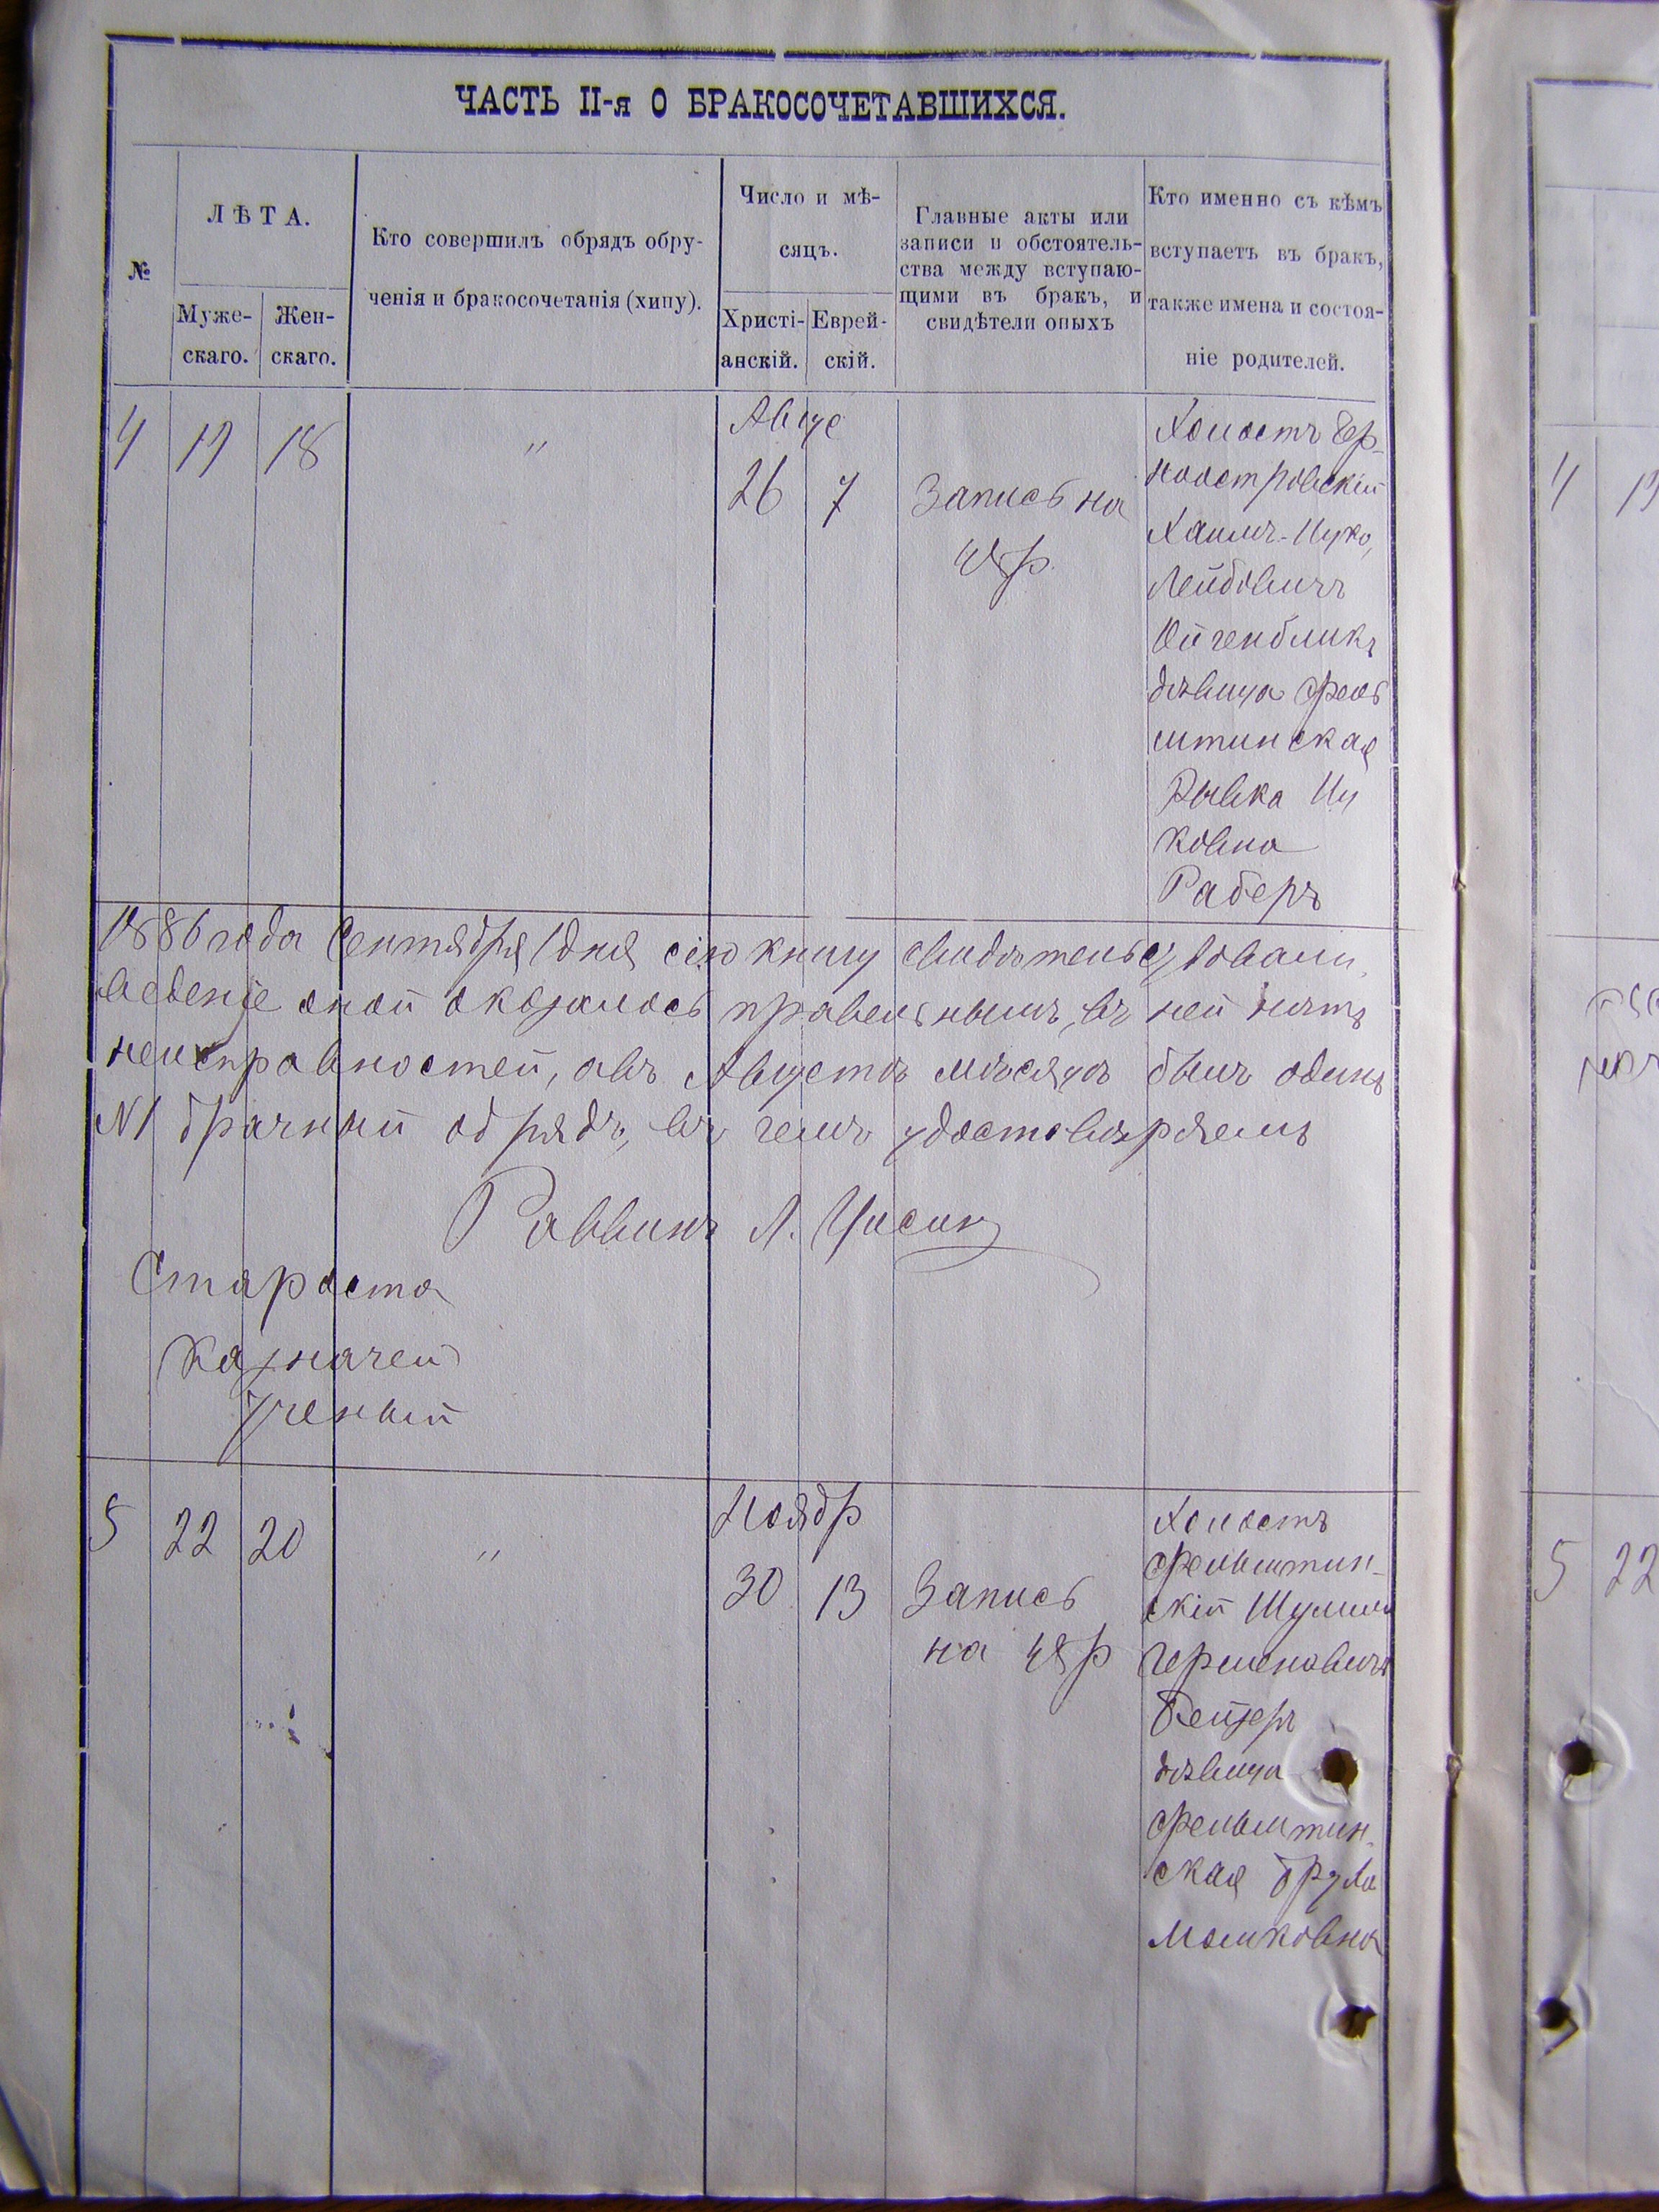 ЧАСТЬ II-я О БРАКОСОЧЕТАВШИХСЯ.
№
ЛѢТА.
Муже-
скаго.
Жен-
скаго.
Кто совершилъ обрядъ обру-
ченія и бракосочетанія (хипу).
Число и мѣ-
сяцъ.
Христі-
анскій.
Еврей-
скій.
Главные акты или
записи и обстоятель-
ства между вступаю-
щими въ бракъ, и
свидѣтели оныхъ
Кто именно съ кѣмъ
вступаетъ въ бракъ,
также имена и состоя-
ніе родителей.
4 19 18 "
Авгус
26 7
Запись на
48 р.
Холостъ Чер-
ноостровскій
Хаимъ-Цуко,
Лейбовичъ
Ойгенбликъ
дѣвица Фель
штинская
Рывка Цу
ковна
Раберъ
1886 года Сентября 1 дня сію книгу свидѣтельствовали,
веденіе оной оказалось правельнымъ, въ ней нѣтъ
неисправностей, авъ Августѣ мѣсяцѣ былъ одинъ
№1 брачный обрядъ, въ чемъ удостовѣряемъ
Раввинъ Л.
Староста
Казначей
Ученый
5 22 20 "
Ноябр
30 13
Запись
на 48 р
Холостъ
Фельштин-
скій
Гершеновичъ
Бейзеръ
дѣвица
Фельштин-
ская
Мошковна
4 19
5 22